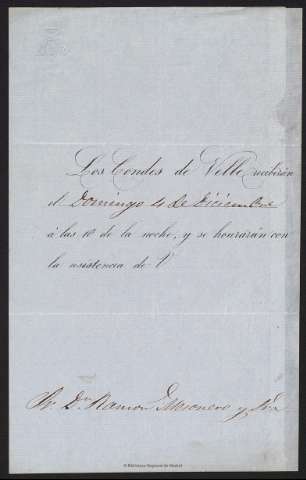 Los Condes de Velle recibirán
el Domingo 4 de Diciembre
á las 10 de la noche, y se honrarán con
la asistencia de V
Sr. Dn. Ramon Mesonero y Sra
© Biblioteca Regional de Madrid